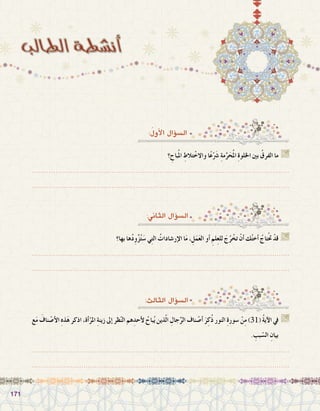 أنشطة الطالب
• السؤال الأول:
ما الفرقُ بين الخلوةِ المُحَرَّمةِ شَرْعًا والاخْتِلاطِ المُباحِ؟
• السؤال الثاني:
قدْ تحتاجُ أُختُكَ أنْ تخرُجَ للتعلمِ أو العَمَلِ، مَا الإرشاداتُ التي سَتُزوِّدُها بها؟
• السؤال الثالث:
في الآيةِ (31) منْ سورةِ النورِ ذُكرَ أصنافُ الرِّجالِ الَّذينَ يُباحُ لأحدهم النَّظرُ إلى زينةِ المرْأةِ، اذكر هَذه الأصْنافَ مَعَ
بيانِ السَّببِ.
171